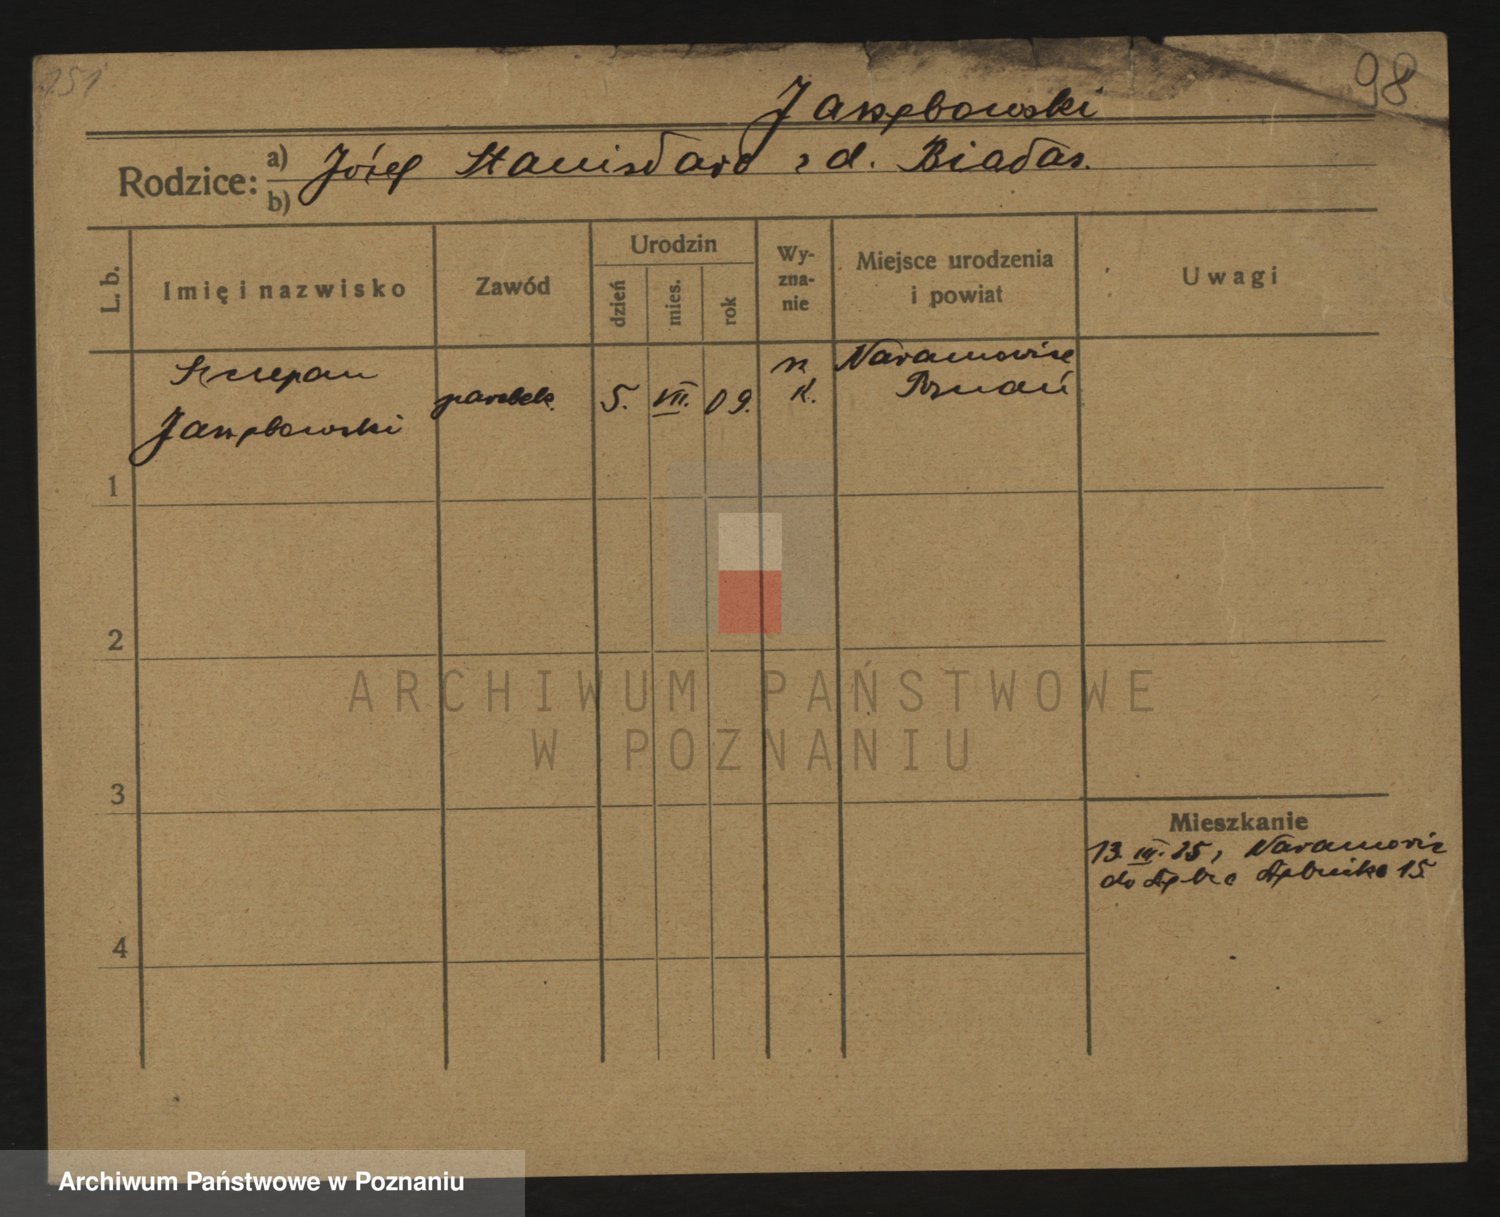 151
98
Rodzice:
a) Józef Stanisława z d. Białas.
b)
L. b.
Imię i nazwisko
Zawód
Urodzin
dzień
mies.
rok
Wy-
zna-
nie
Miejsce urodzenia
i powiat
Uwagi
Szczepan
parobek.
5. VII. 09.
K.
Naramowice
Poznań
1
2
3
4
Mieszkanie
13 III. 25, Naramowic
15
ARCHIWUM PAŃSTWOWE
W POZNANIU
Archiwum Państwowe w Poznaniu